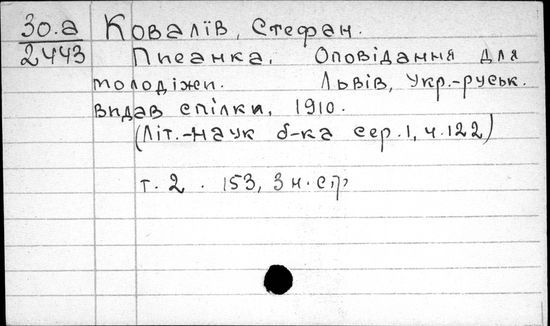 30.а Ковалїв, Стефан.
2443 Писанка. Оповідання для
молодїжи. Львів, Укр.-руськ.
видав спілки, 1910.
(Літ.-наук б-ка сер. 1, ч. 122)
т. 2. 153, 3 н. стр